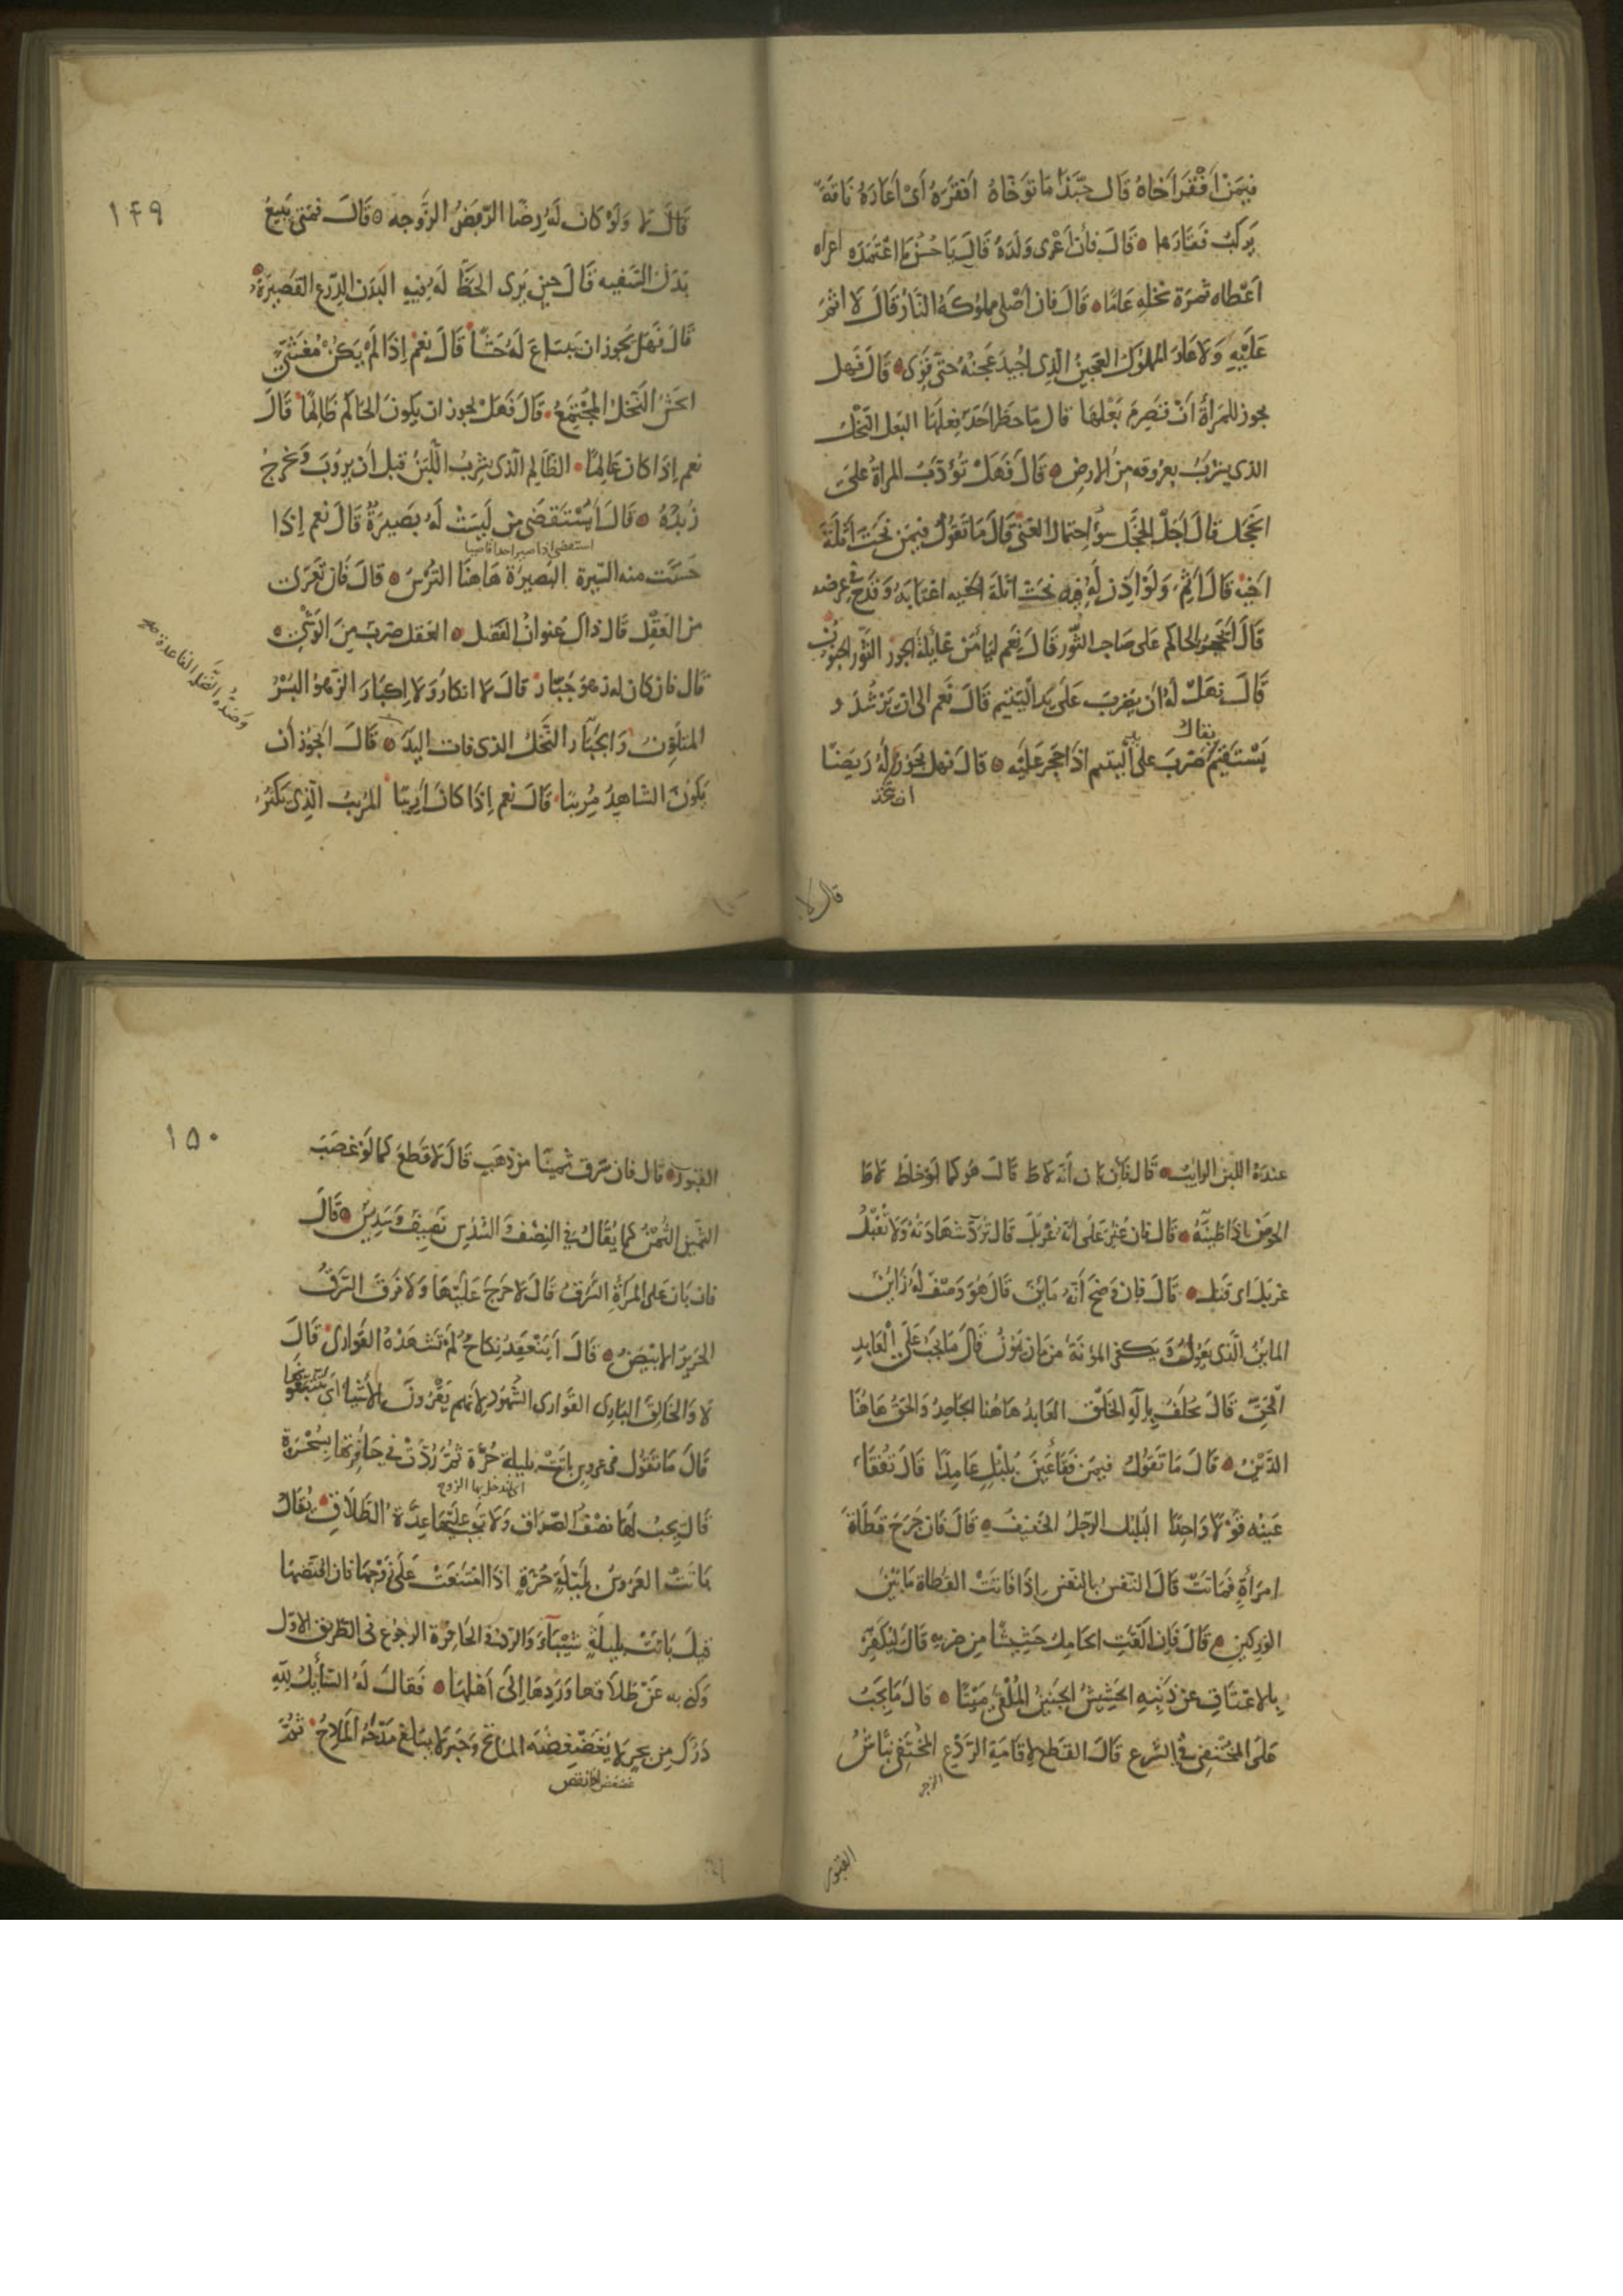 فيمَنْ اَفْقَرَ اَخَاهُ قَالَ حَبَّذَا مَا تَوَخَّاهُ اَفْقَرَهُ اَىْ اَعَارَهُ نَاقَةً
يَرْكَبُ فَقَارَهَا ۞ قَالَ فَاِنْ اَعْرَى وَلَدَهُ قَالَ يَا حُسْنَ مَا اعْتَمَدَه اعراه
اَعْطَاه ثمرَة نخلهِ عَامًا ۞ قَالَ فَان اَصْلى مملوُكَهُ النَّارَ قَالَ لَا اثمَ
عَلَيْهِ وَلَا عَارَ المملُوكُ العَجِينُ الَّذِى اجُيدَ عَجنهُ حَتّى قَوِىَ ۞ قَالَ فَهل
يجوز للمَرأةِ اَنْ تصَرِمَ بَعْلهَا قال مَا حظَرَ اَحَدٌ فِعلَهَا البَعل النّخلُ
الذى يشرَبُ بعرُوقه مِنَ الارضِ ۞ قَالَ فَهَلْ تُؤدَّبُ المراةُ عَلىَ
الخَجَل قَالَ اَجَلْ الخَجَل سوُٓ احتِمَال الغنى قَالَ مَا تَقوُلُ فيمَن نَحَتَ اَثلَةَ
اَخيهِ قَالَ اَثِمَ وَلَوْ اَذِنَ لَهُ فِيهِ نحَتَ اثلةَ اَخيه اغتَابَهُ وَقَدَحَ فى عِرضه
قَالَ اَيَحْجُرُ الحاكم عَلى صَاحِب الثَّوْر قَالَ نَعَم ليَأْمَنَ غَائِلَةَ الجور الثَّور الجنُونُ
قَالَ فهَلْ لَهُ اَن يضَرِبَ عَلَى يَدِ اليَتيم قَالَ نَعم الى ان يَرْشُدَ و
يَسْتَقيمُ يقال ضرَبَ على يد اليتيم اذَا حجَرَ عَلَيْه ۞ قال فهل يجَوزُ ان يتخذ لَهُ رَبَضًا
قال لا
١٤٩
قَالَ لا وَلَوْ كَانَ لَهُ رِضًا الرّبَضُ الزَّوجه ۞ قَالَ فمَتى يَبيعُ
بَدَنَ السَّفيه قَالَ حينَ يَرى الحَظَّ لَهُ فِيهِ البَدَن الدِّرْع القَصيرَة ۞
قَالَ فَهَل يجَوز ان يبتَاعَ لَهُ حَشًّا قَالَ نَعَمْ اِذَا لَمْ يَكُنْ مُغَشًّى
الحَشُّ النَّخلُ المجْتمِعُ ۞ قَالَ فَهَلْ يجوز ان يكونَ الحَاكم ظَالِمًا قَالَ
نعم اِذَا كَان عَالِمًا ۞ الظَّالِم الَّذى يشرِبُ اللَّبَنَ قبل اَن يرُوبَ وَيخرجُ
زُبدُهُ ۞ قَالَ اَيُسْتَقضَى مَن لَيسَتْ لَهُ بَصيرَةٌ قَالَ نَعم اِذَا
استقضى اذا صير احدا قاضيا
حَسُنَت منه السِّيرة البَصيرَة هَاهنَا التُرْسُ ۞ قالَ فَان تَعَرّىَ
منَ العَقْل قَالَ ذَاكَ عُنوَانُ الفَضل ۞ العَقلُ ضَربٌ مِنَ الوَشْىِ ۞
وضدهُ التفضّل القاعدة صح
قَال فَان كَان له زهوُ جَبَّار قَالَ لا انكارَ وَلا اِكبَارَ الزهوُ البُسْرُ
المتلَوّنُ وَالجَبّارُ النَّخلُ الذى فَاتَ اليدَ ۞ قَالَ اَيجوُز اَن
يكونَ الشاهِدُ مُرِيبًا ۞ قَالَ نعم اِذَا كَانَ اَرِيبًا المُريبُ الَّذِى يَكثرُ
عندهُ اللَّبن الرايبُ ۞ قَالَ فَاِن بَان اَنَّهُ لاطَ قَالَ هُوَ كما لَوْ خاطَ لاطَ
الحَوْضَ اذا طينَّهُ ۞ قَالَ فان عُثِرَ عَلى انّهُ غَرْبَلَ قَالَ تُرَدُّ شهَادَتهُ وَلا تُقْبَلُ
غربَلَ اى قتَل ۞ قَالَ فَاِن وَضَحَ اَنّهُ مَايِنٌ قَالَ هُوَ وَصْفٌ لهُ زَايِنٌ
الماينُ الَّذى يَعُولُ وَيَكفى المؤنَةَ مِن مَان يَمُونُ قَالَ مَا يجَبُ عَلَى العَابدِ
الحَقّ قَالَ يُحلَفُ بِاِلَهِ الخَلْق العَابِدُ هَاهُنا الجَاحِدُ وَالحَقُّ هَاهُنَا
الدَّيْنُ ۞ قَالَ مَا تَقَوُلُ فيمَن فَقَأ عَيْنَ بُلبُلٍ عَامِدًا قَالَ تُفْقَأ
عَينُه قَوْلاً وَاحِدًا البُلبُل الرَّجلُ الخَفيفُ ۞ قَالَ فَان جَرَحَ قَطَاةَ
امرَأةٍ فمَاتَتْ قَالَ النَّفسُ بالنّفسِ اِذَا فَاتَتْ القَطاة مَا بَيْنَ
الوركين ۞ قَالَ فَاِن اَلْقَتِ الحَامِلُ حَشِيشًا مِن ضربه قَالَ ليُكَفِّرْ
بِالاعْتَاقِ عَنْ ذَنبِهِ الحَشِيشُ الجَنينُ المُلْقَى مَيْتًا ۞ قَالَ مَا يَجبُ
عَلَى المُخْتَفى فى الشَّرع قَالَ القَطع لاِقَامَةِ الرَّدْع المُخْتَفى نَبّاشُ
الزجر
القبور
١٥٠
القبُور ۞ قَالَ فَان سَرَق ثمينًا من ذهَبٍ قَالَ لا قَطعَ كما لَوْ غصَبَ
الثَّمينُ الثُّمْنُ كما يُقَالُ فى النِصْف وَالسُّدُس نَصِيفٌ وَسَدِيسٌ ۞ قَالَ
فان بَان على المرأةِ السَّرقُ قَالَ لا حرَجَ عَلَيْهَا وَلا فَرَقَ السَّرَقُ
الحَرِيرُ الابْيَضُ ۞ قَالَ اَيَنْعَقِدُ نِكاحٌ لَمْ تَشهَدْهُ القَوَارى قَالَ
لا وَالخَالِق البَارِى القَوَارى الشُّهوُد لانّهم يَقْرُونَ الاشياءَ اَى يَتَتَبَّعُونَها
قَالَ مَا تَقوُل فى عروسٍ باتَتْ بليلَة حُرَّة ثمَّ رُدَّتْ فى حَافِرتهَا بِسُحْرَة
اى لم يدخل بها الزوج
قَالَ يجبُ لهَا نصْفُ الصَّدَاق وَلا تجَبُ عَليْهَا عِدَّةُ الطَّلاَقِ ۞ يُقَالُ
بَاتَتْ العَرُوسُ بلَيْلَةِ حُرَّةٍ اذَا امْتَنعَتْ عَلَى زَوْجِهَا فان افتَضَّها
قيلَ بَاتَتْ بليلَةِ شَيْبَآءَ وَالرَّدُّ فى الحَافِرَة الرجُوع فى الطَّريق الاوّل
وَكنى به عَن طلاقها وَرَدِهَا اِلَى اَهْلهَا ۞ فَقَالَ لَهُ السَّائِلُ للهِ
دَرُّكَ مِن بحرٍ لا يُغَضْغِضُه المَاتح وَحَبرٍ لا يبلغ مَدْحَهُ المَادِحُ ۞ ثمَّ
غضغض اى انقص